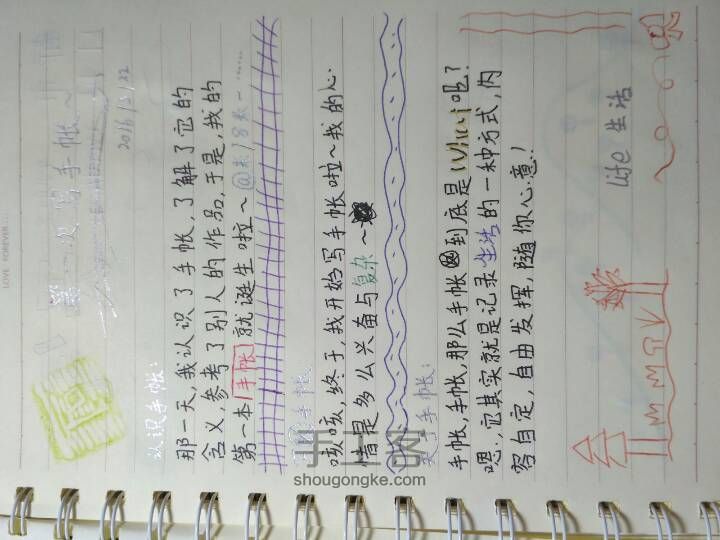 第一次写手帐~
2016/5/22
认识手帐:
那一天,我认识了手帐,了解了它的
含义,参考了别人的作品,于是,我的
第一本手帐就诞生啦~
手帐
咳咳,终于,我开始写手帐啦~我的心
情是多么兴奋与复杂~
手帐:
手帐,手帐,那么手帐到底是What呢?
嗯,它其实就是记录生活的一种方式,内
容自定,自由发挥,随你心意!
life 生活
LOVE FOREVER...
手工客
shougongke.com